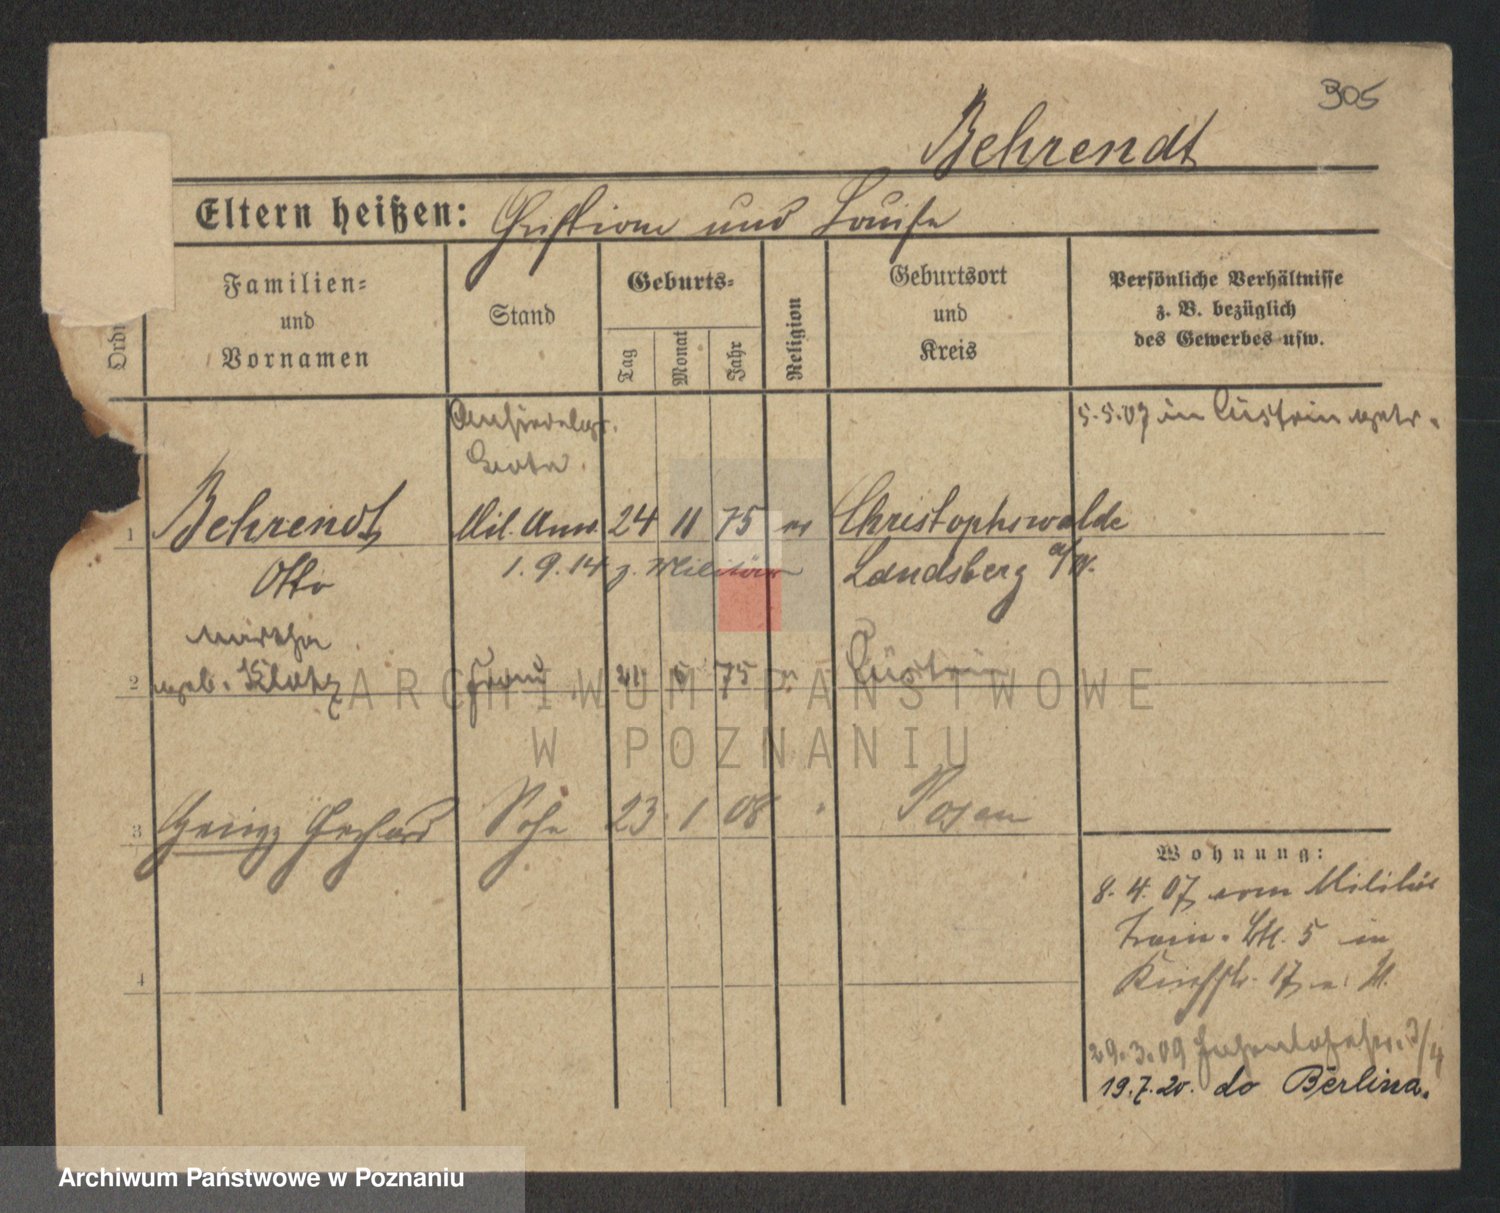 305
Behrendt
Eltern heißen: Christian und Louise
Ordn
Familien=
und
Vornamen
Stand
Geburts=
Tag
Monat
Jahr
Religion
Geburtsort
und
Kreis
Persönliche Verhältnisse
z. B. bezüglich
des Gewerbes usw.
5.5.07 in Cüstrin getr.
1 Behrendt Mil. Anw. 24 11 75 ev Christophswalde
Otto 1.9.14 z. Militär Landsberg a/W.
Martha
2 geb. Klotz Frau 5 75 Cüstrin
ARCHIWUM PAŃSTWOWE
W POZNANIU
3 Georg Gerhard Sohn 23 1 08 " Posen
Wohnung:
8.4.07 vom Militär
Train. Btl. 5 in
Kirchstr. 17
4
29.3.09 Hohenlohestr. 3/4
19.7.20. do Berlina.
Archiwum Państwowe w Poznaniu